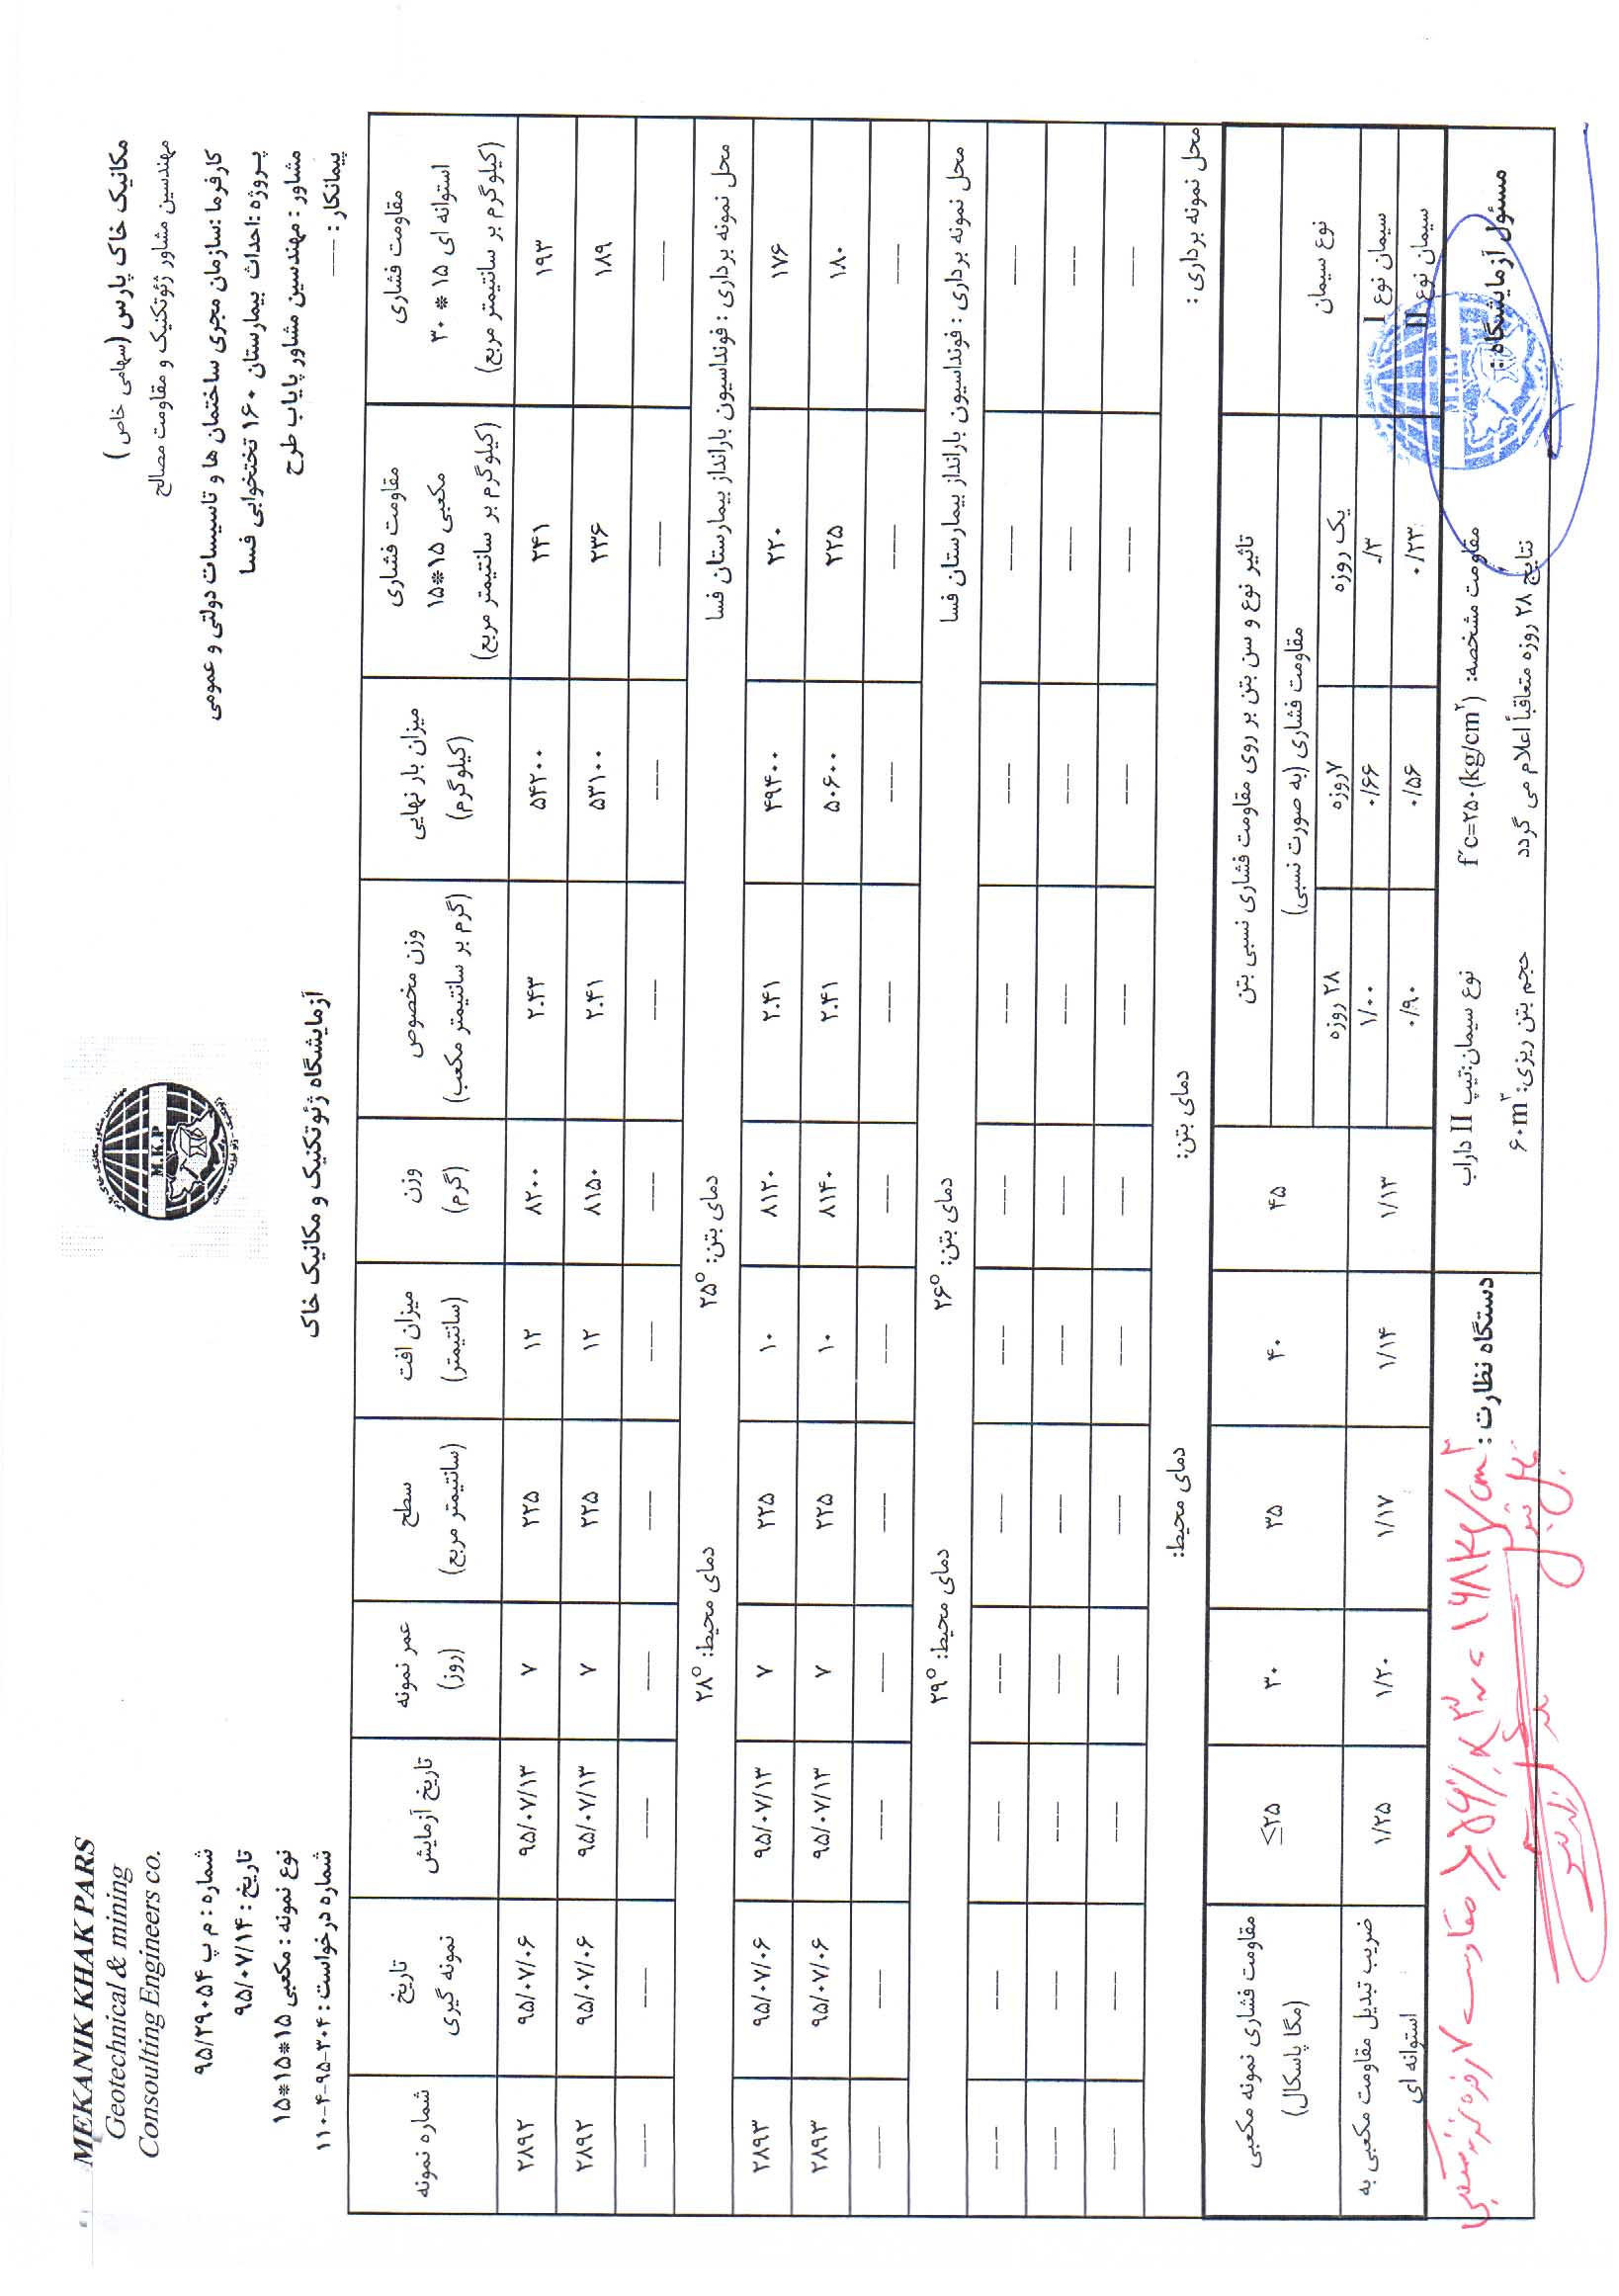 MEKANIK KHAK PARS
Geotechnical & mining
Consoulting Engineers co.
شماره : م پ ۹۵/۲۹۰۵۴
تاریخ : ۹۵/۰۷/۱۴
نوع نمونه : مکعبی ۱۵*۱۵*۱۵
شماره درخواست : ۳۰۴-۹۵-۴-۱۱۰
M.K.P
آزمایشگاه ژئوتکنیک و مکانیک خاک
مکانیک خاک پارس (سهامی خاص)
مهندسین مشاور ژئوتکنیک و مقاومت مصالح
کارفرما :سازمان مجری ساختمان ها و تاسیسات دولتی و عمومی
پروژه :احداث بیمارستان ۱۶۰ تختخوابی فسا
مشاور : مهندسین مشاور پایاب طرح
پیمانکار : ----
شماره نمونه | تاریخ نمونه گیری | تاریخ آزمایش | عمر نمونه (روز) | سطح (سانتیمتر مربع) | میزان افت (سانتیمتر) | وزن (گرم) | وزن مخصوص (گرم بر سانتیمتر مکعب) | میزان بار نهایی (کیلوگرم) | مقاومت فشاری مکعبی ۱۵*۱۵ (کیلوگرم بر سانتیمتر مربع) | مقاومت فشاری استوانه ای ۱۵ * ۳۰ (کیلوگرم بر سانتیمتر مربع)
۲۸۹۲ | ۹۵/۰۷/۰۶ | ۹۵/۰۷/۱۳ | ۷ | ۲۲۵ | ۱۲ | ۸۲۰۰ | ۲.۴۳ | ۵۴۲۰۰ | ۲۴۱ | ۱۹۳
۲۸۹۲ | ۹۵/۰۷/۰۶ | ۹۵/۰۷/۱۳ | ۷ | ۲۲۵ | ۱۲ | ۸۱۵۰ | ۲.۴۱ | ۵۳۱۰۰ | ۲۳۶ | ۱۸۹
---- | ---- | ---- | ---- | ---- | ---- | ---- | ---- | ---- | ---- | ----
محل نمونه برداری : فونداسیون بارانداز بیمارستان فسا دمای بتن: ۲۵° دمای محیط: ۲۸°
۲۸۹۳ | ۹۵/۰۷/۰۶ | ۹۵/۰۷/۱۳ | ۷ | ۲۲۵ | ۱۰ | ۸۱۲۰ | ۲.۴۱ | ۴۹۴۰۰ | ۲۲۰ | ۱۷۶
۲۸۹۳ | ۹۵/۰۷/۰۶ | ۹۵/۰۷/۱۳ | ۷ | ۲۲۵ | ۱۰ | ۸۱۴۰ | ۲.۴۱ | ۵۰۶۰۰ | ۲۲۵ | ۱۸۰
---- | ---- | ---- | ---- | ---- | ---- | ---- | ---- | ---- | ---- | ----
محل نمونه برداری : فونداسیون بارانداز بیمارستان فسا دمای بتن: ۲۶° دمای محیط: ۲۹°
---- | ---- | ---- | ---- | ---- | ---- | ---- | ---- | ---- | ---- | ----
---- | ---- | ---- | ---- | ---- | ---- | ---- | ---- | ---- | ---- | ----
---- | ---- | ---- | ---- | ---- | ---- | ---- | ---- | ---- | ---- | ----
محل نمونه برداری : دمای بتن: دمای محیط:
مقاومت فشاری نمونه مکعبی (مگا پاسکال) | ≤۲۵ | ۳۰ | ۳۵ | ۴۰ | ۴۵
ضریب تبدیل مقاومت مکعبی به استوانه ای | ۱/۲۵ | ۱/۲۰ | ۱/۱۷ | ۱/۱۴ | ۱/۱۳
تاثیر نوع و سن بتن بر روی مقاومت فشاری نسبی بتن
مقاومت فشاری (به صورت نسبی) | نوع سیمان
۲۸ روزه | ۷روزه | یک روزه
۱/۰۰ | ۰/۶۶ | ۰/۳ | سیمان نوع I
۰/۹۰ | ۰/۵۶ | ۰/۲۳ | سیمان نوع II
مسئول آزمایشگاه:
M.K.P
مقاومت مشخصه: f´c=۲۵۰(kg/cm۲)
نتایج ۲۸ روزه متعاقباً اعلام می گردد
نوع سیمان:تیپ II داراب
حجم بتن ریزی: ۶۰m۳
دستگاه نظارت :
مقاومت ۷ روزه نمونه مکعبی ≥ ۵۶٪ × ۳۰۰ = ۱۶۸ kg/cm۲
قابل قبول